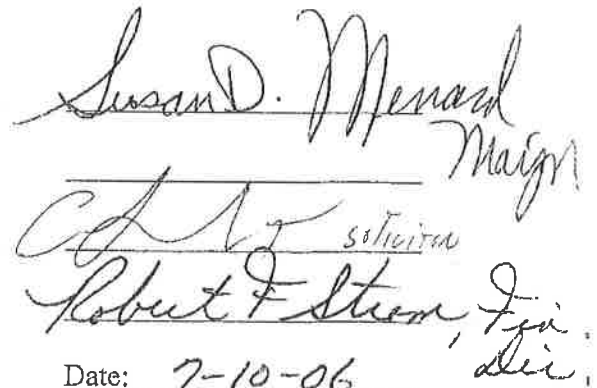 Susan D. Menard
Mayor
solicitor
Robert F Strom, Fin.
Dir.
Date: 7-10-06